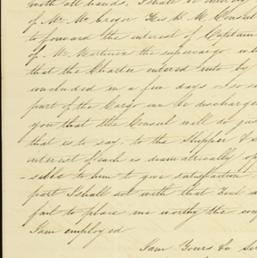 with all hands, I shall be
of Mr. McGregor Her B. M. Consul
to forward the interest of Captain
of Mr. Martinez the supercargo
that the Charter entered into by
concluded in a few days & so
part of the Cargo are be discharged
you that the Consul will do
that is to say, to the Shipper &
interest of each is diametrically op
=sible to him to give satisfaction
part I shall act with that Zeal
fail to place me worthy the
I am employed
I am Yours &c